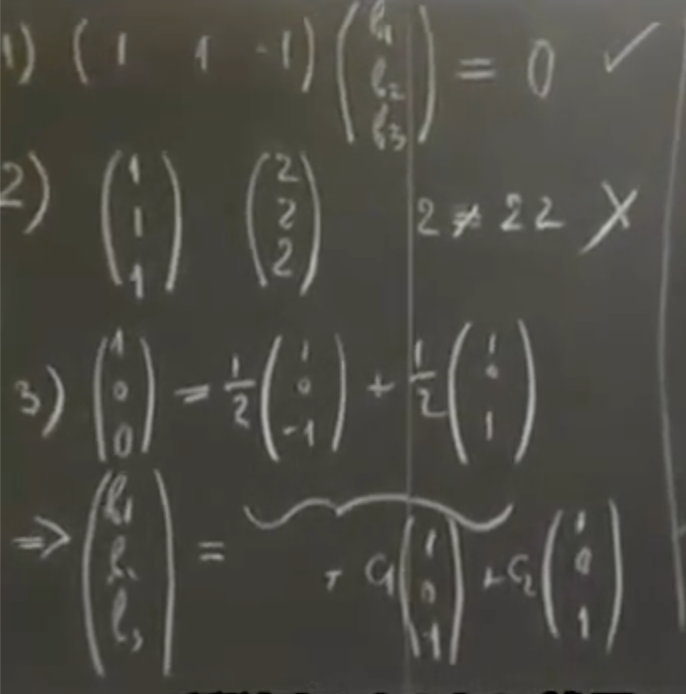 1) ( 1 1 -1) (b1 b2 b3) = 0 ✓
2) (1 1 1) (2 2 2) 2 ≠ 22 X
3) (1 0 0) = 1/2 (1 0 -1) + 1/2 (1 0 1)
⇒ (b1 b2 b3) = + c1 (1 0 -1) + c2 (1 0 1)